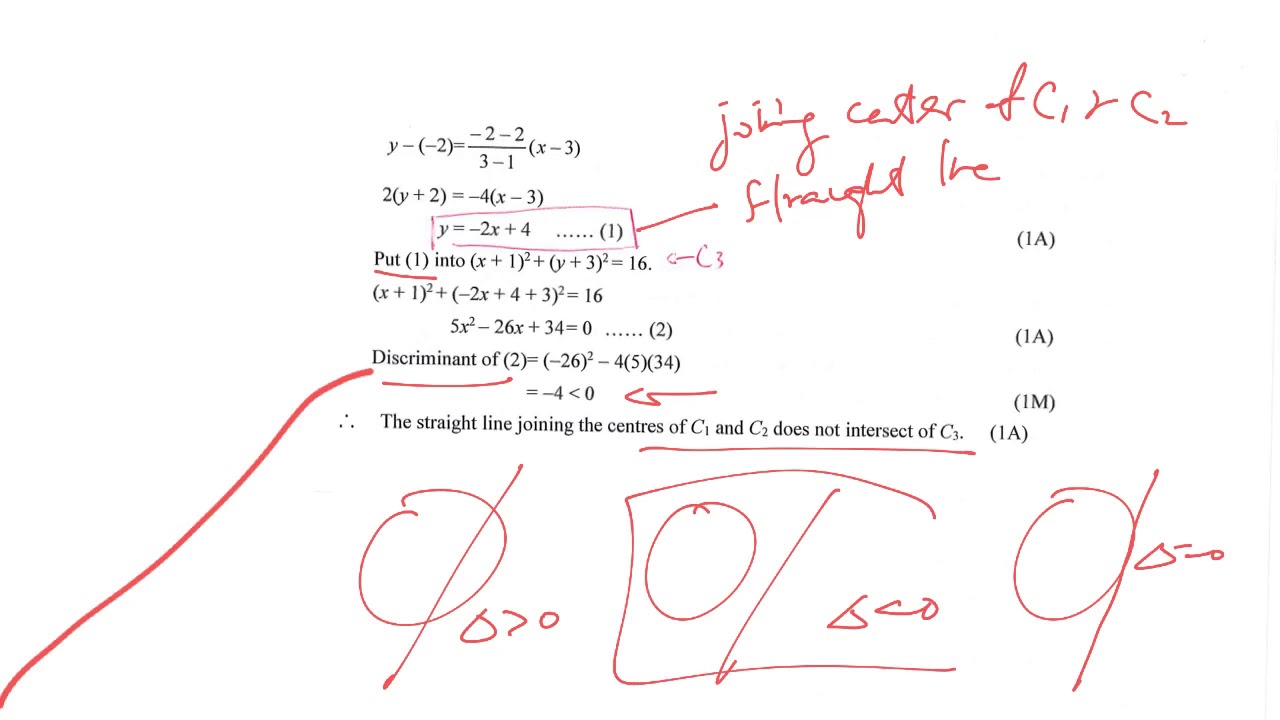 joining center of C₁ & C₂
straight line
y − (−2)= \frac{−2 − 2}{3 − 1}(x − 3)
2(y + 2) = −4(x − 3)
y = −2x + 4 …… (1)
(1A)
Put (1) into (x + 1)² + (y + 3)² = 16. ← C3
(x + 1)² + (−2x + 4 + 3)² = 16
5x² − 26x + 34= 0 …… (2) (1A)
Discriminant of (2)= (−26)² − 4(5)(34)
= −4 < 0 (1M)
∴ The straight line joining the centres of C₁ and C₂ does not intersect of C₃. (1A)
Δ>0 Δ<0 Δ=0